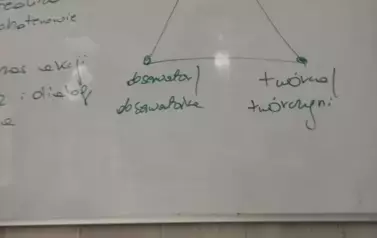 bohaterowie
czas akcji
i dialog
obserwator/
obserwatorka
twórca/
twórczyni